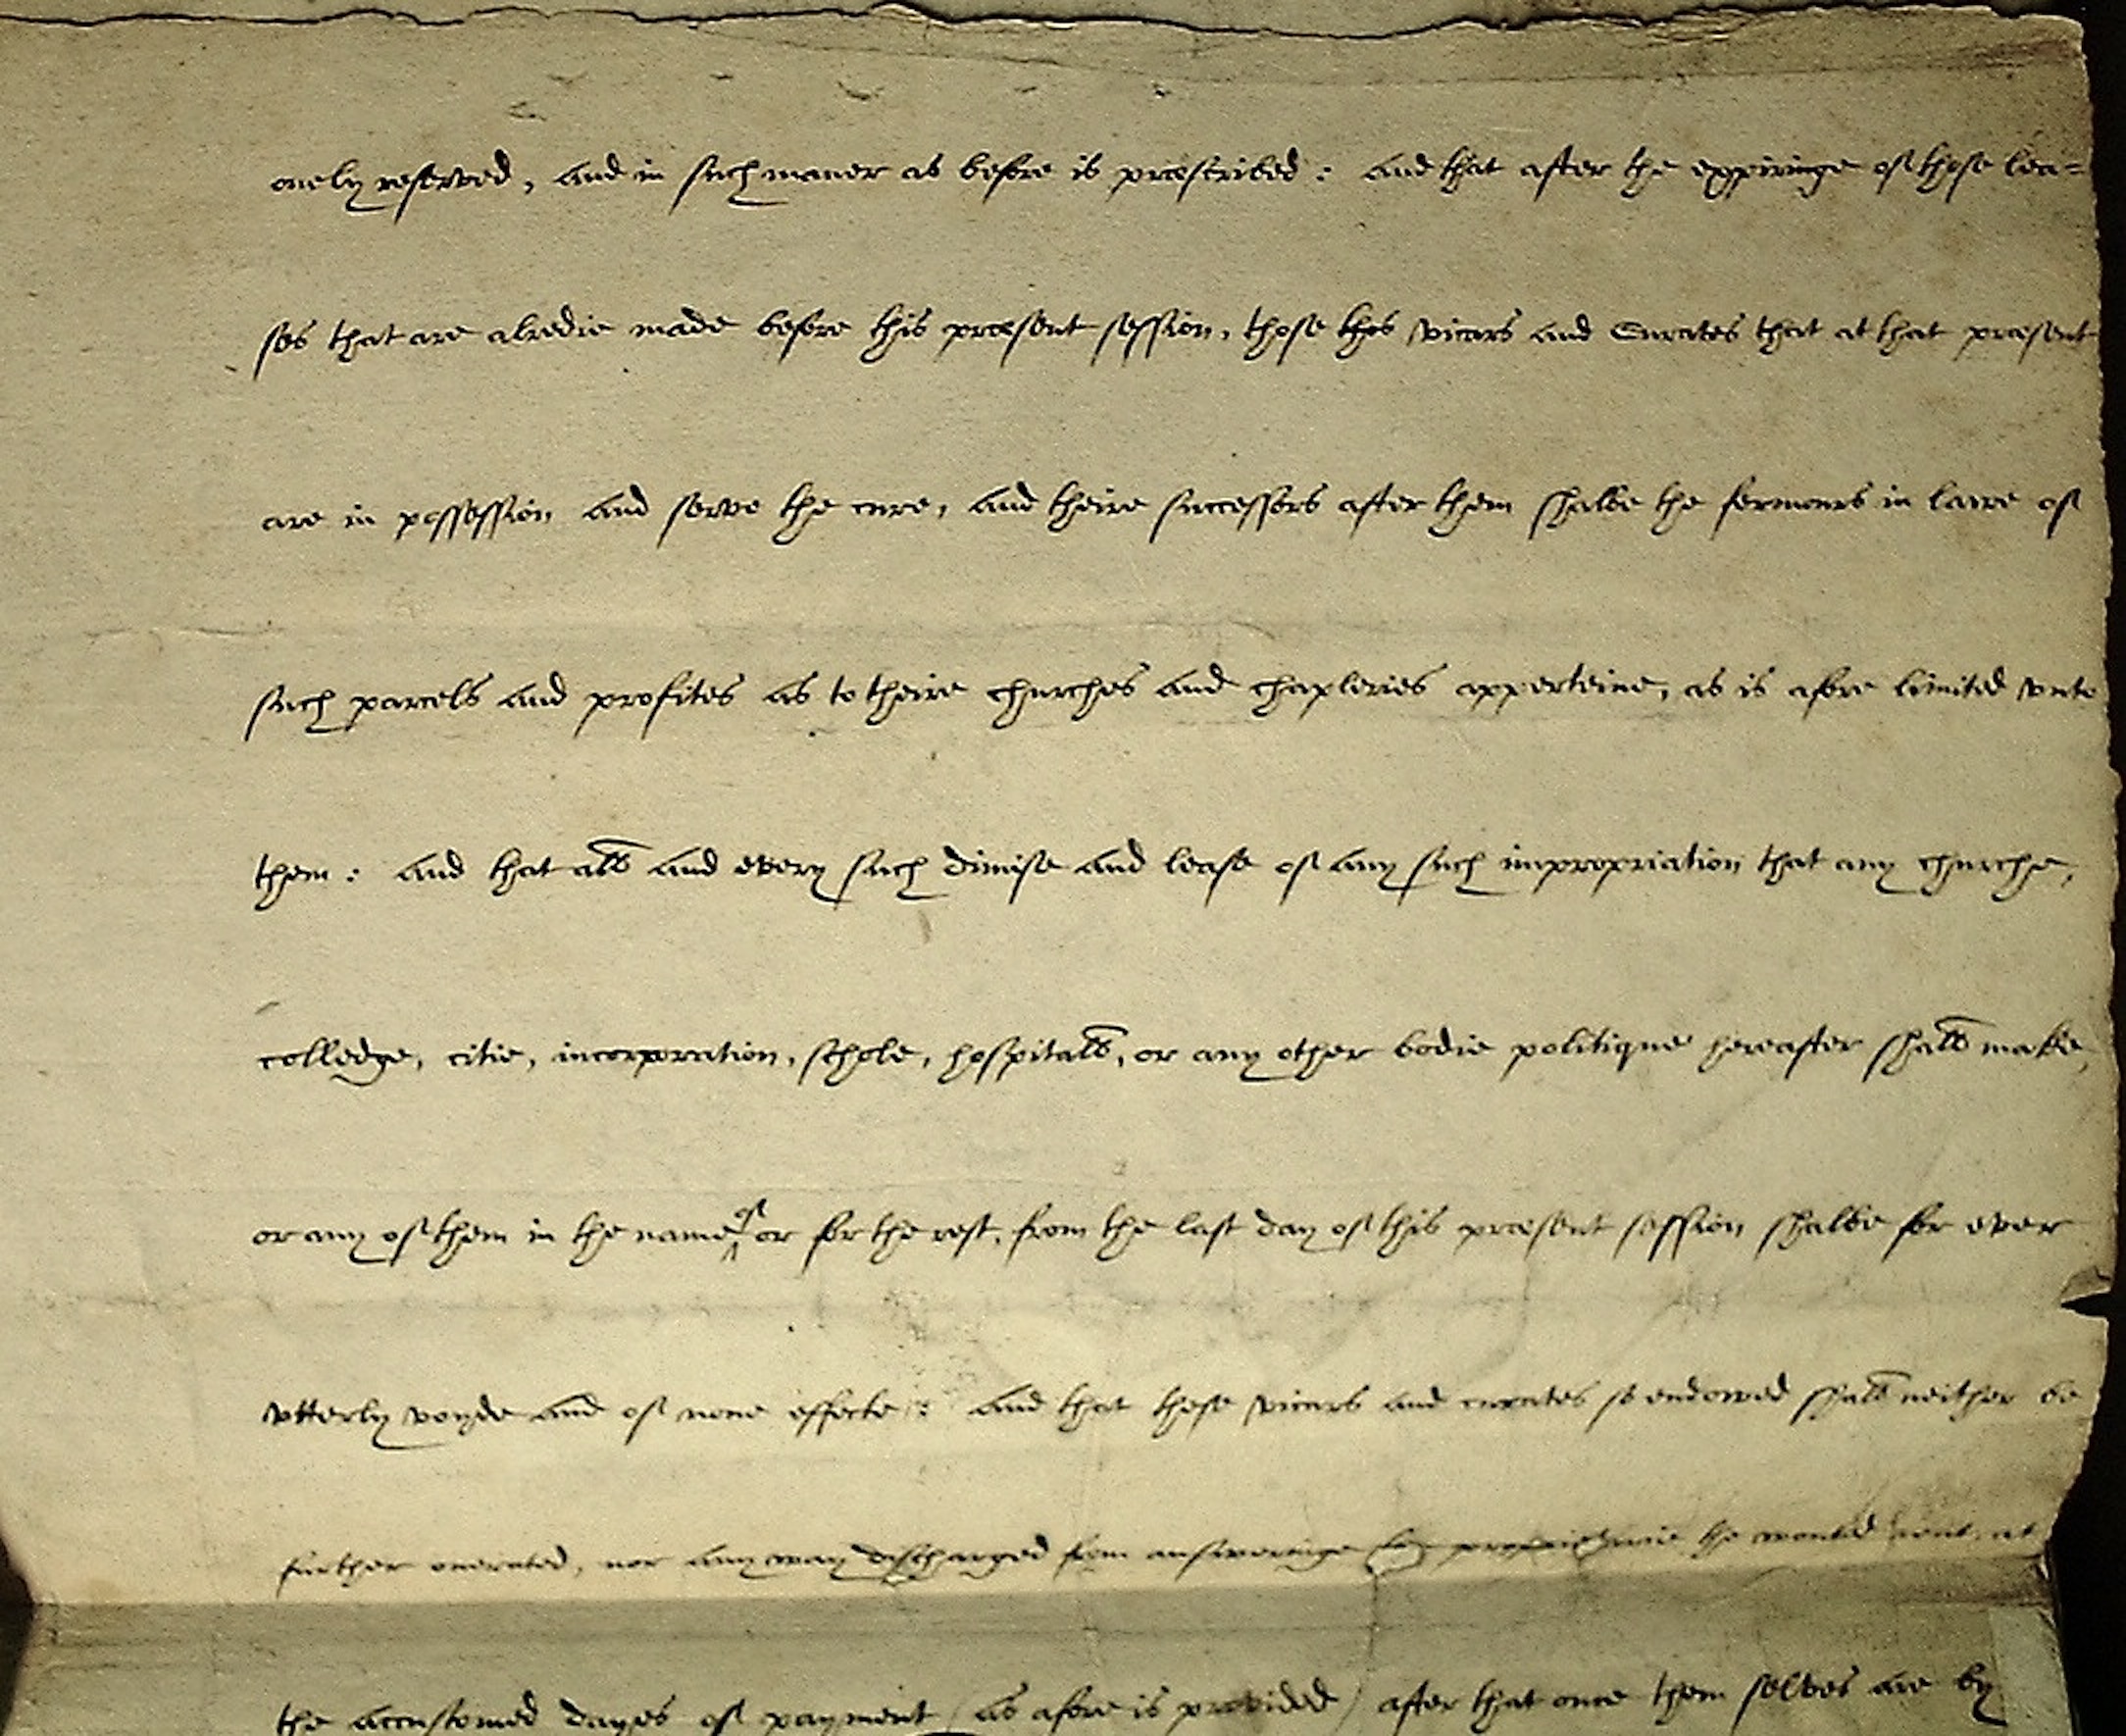 onely reserved, and in such maner as before is præscribed: and that after the expiringe of those lea=
ses that are alredie made before this præsent session, those thos vicars and Curates that at that præsent
are in possession and serve the cure, and theire successors after them shalbe the fermours in lawe of
such parcels and profites as to theire churches and chapleries apperteine, as is afore limited vnto
them: and that all and every such dimise and lease of any such impropriation that any churche,
colledge, citie, incorporation, schole, hospitall, or any other bodie politique hereafter shall make,
or any of them in the name of or for the rest, from the last day of this præsent session shalbe for ever
vtterly voyde and of none effecte: and that those vicars and curates so endowed shall neither be
further onerated, nor any way discharged from answeringe the wonted rent at
the accustomed dayes of payment (as afore is provided) after that once them selves are by